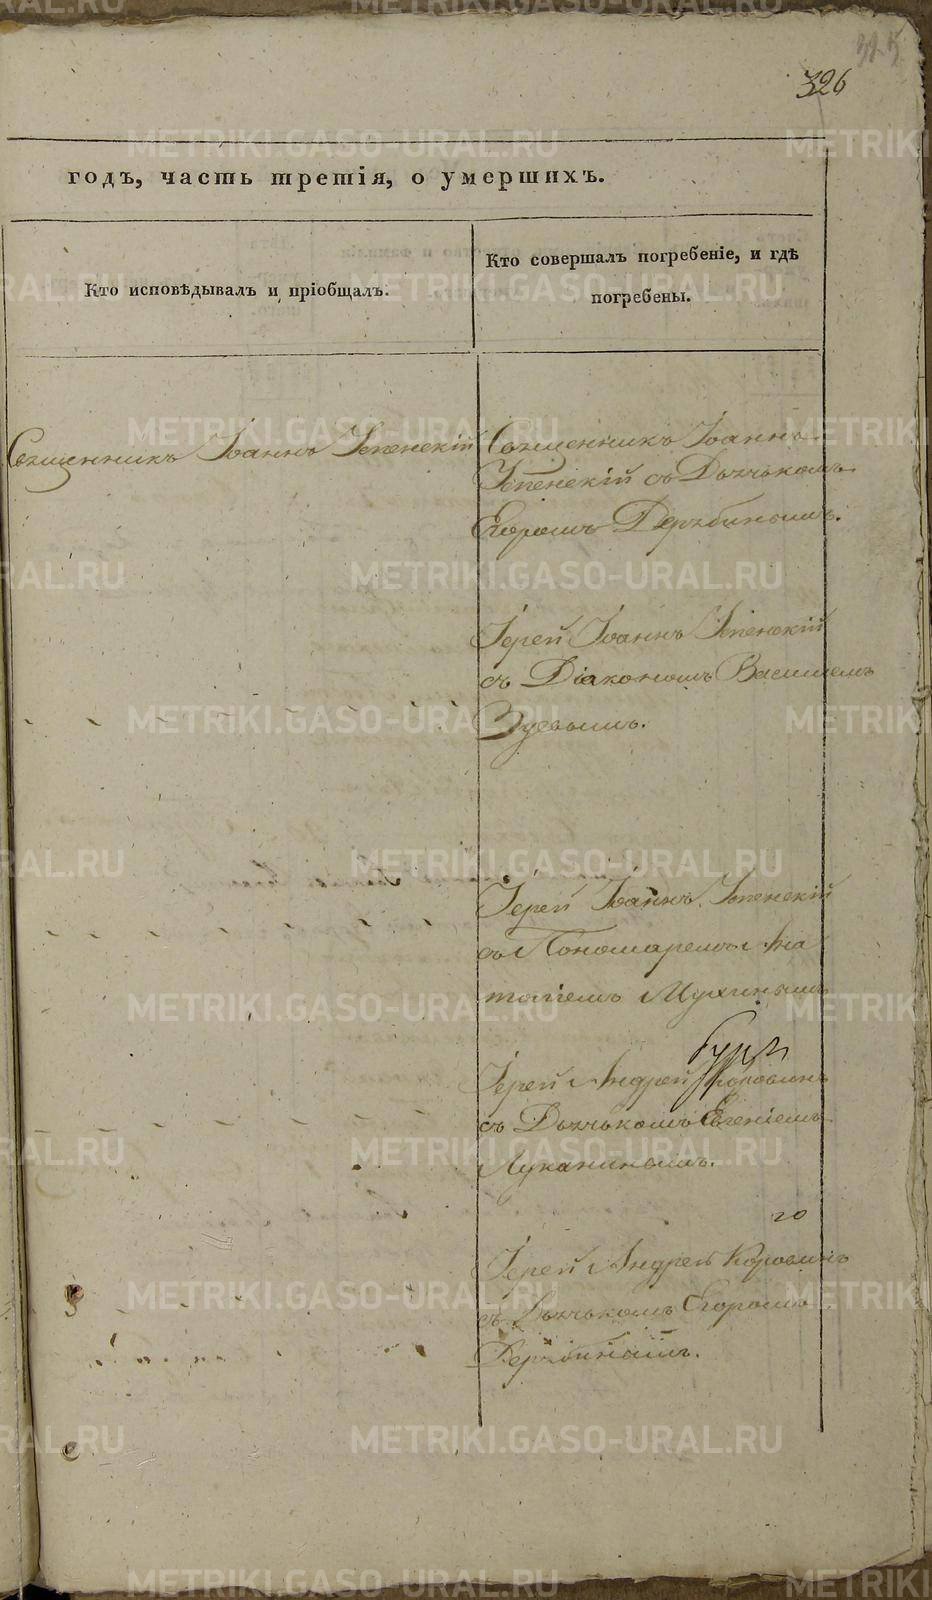 325
326
годъ, часть третія, о умершихъ.
Кто исповѣдывалъ и пріобщалъ.
Кто совершалъ погребеніе, и гдѣ
погребены.
Священникъ Іоаннъ Успенскій
Священникъ Іоаннъ
Успенскій съ Дьячькомъ
Егоромъ Дерябинымъ.
Іерей Іоаннъ Успенскій
съ Діакономъ Василіемъ
Зуевымъ.
Іерей Іоаннъ Успенскій
съ Пономаремъ
Мухинымъ
Іерей Андрей Коровинъ
съ Дьячькомъ Евгеніемъ
Луканинымъ.
го
Іерей Андрей Коровинъ
съ Дьячькомъ Егоромъ
Дерябинымъ.
METRIKI.GASO-URAL.RU